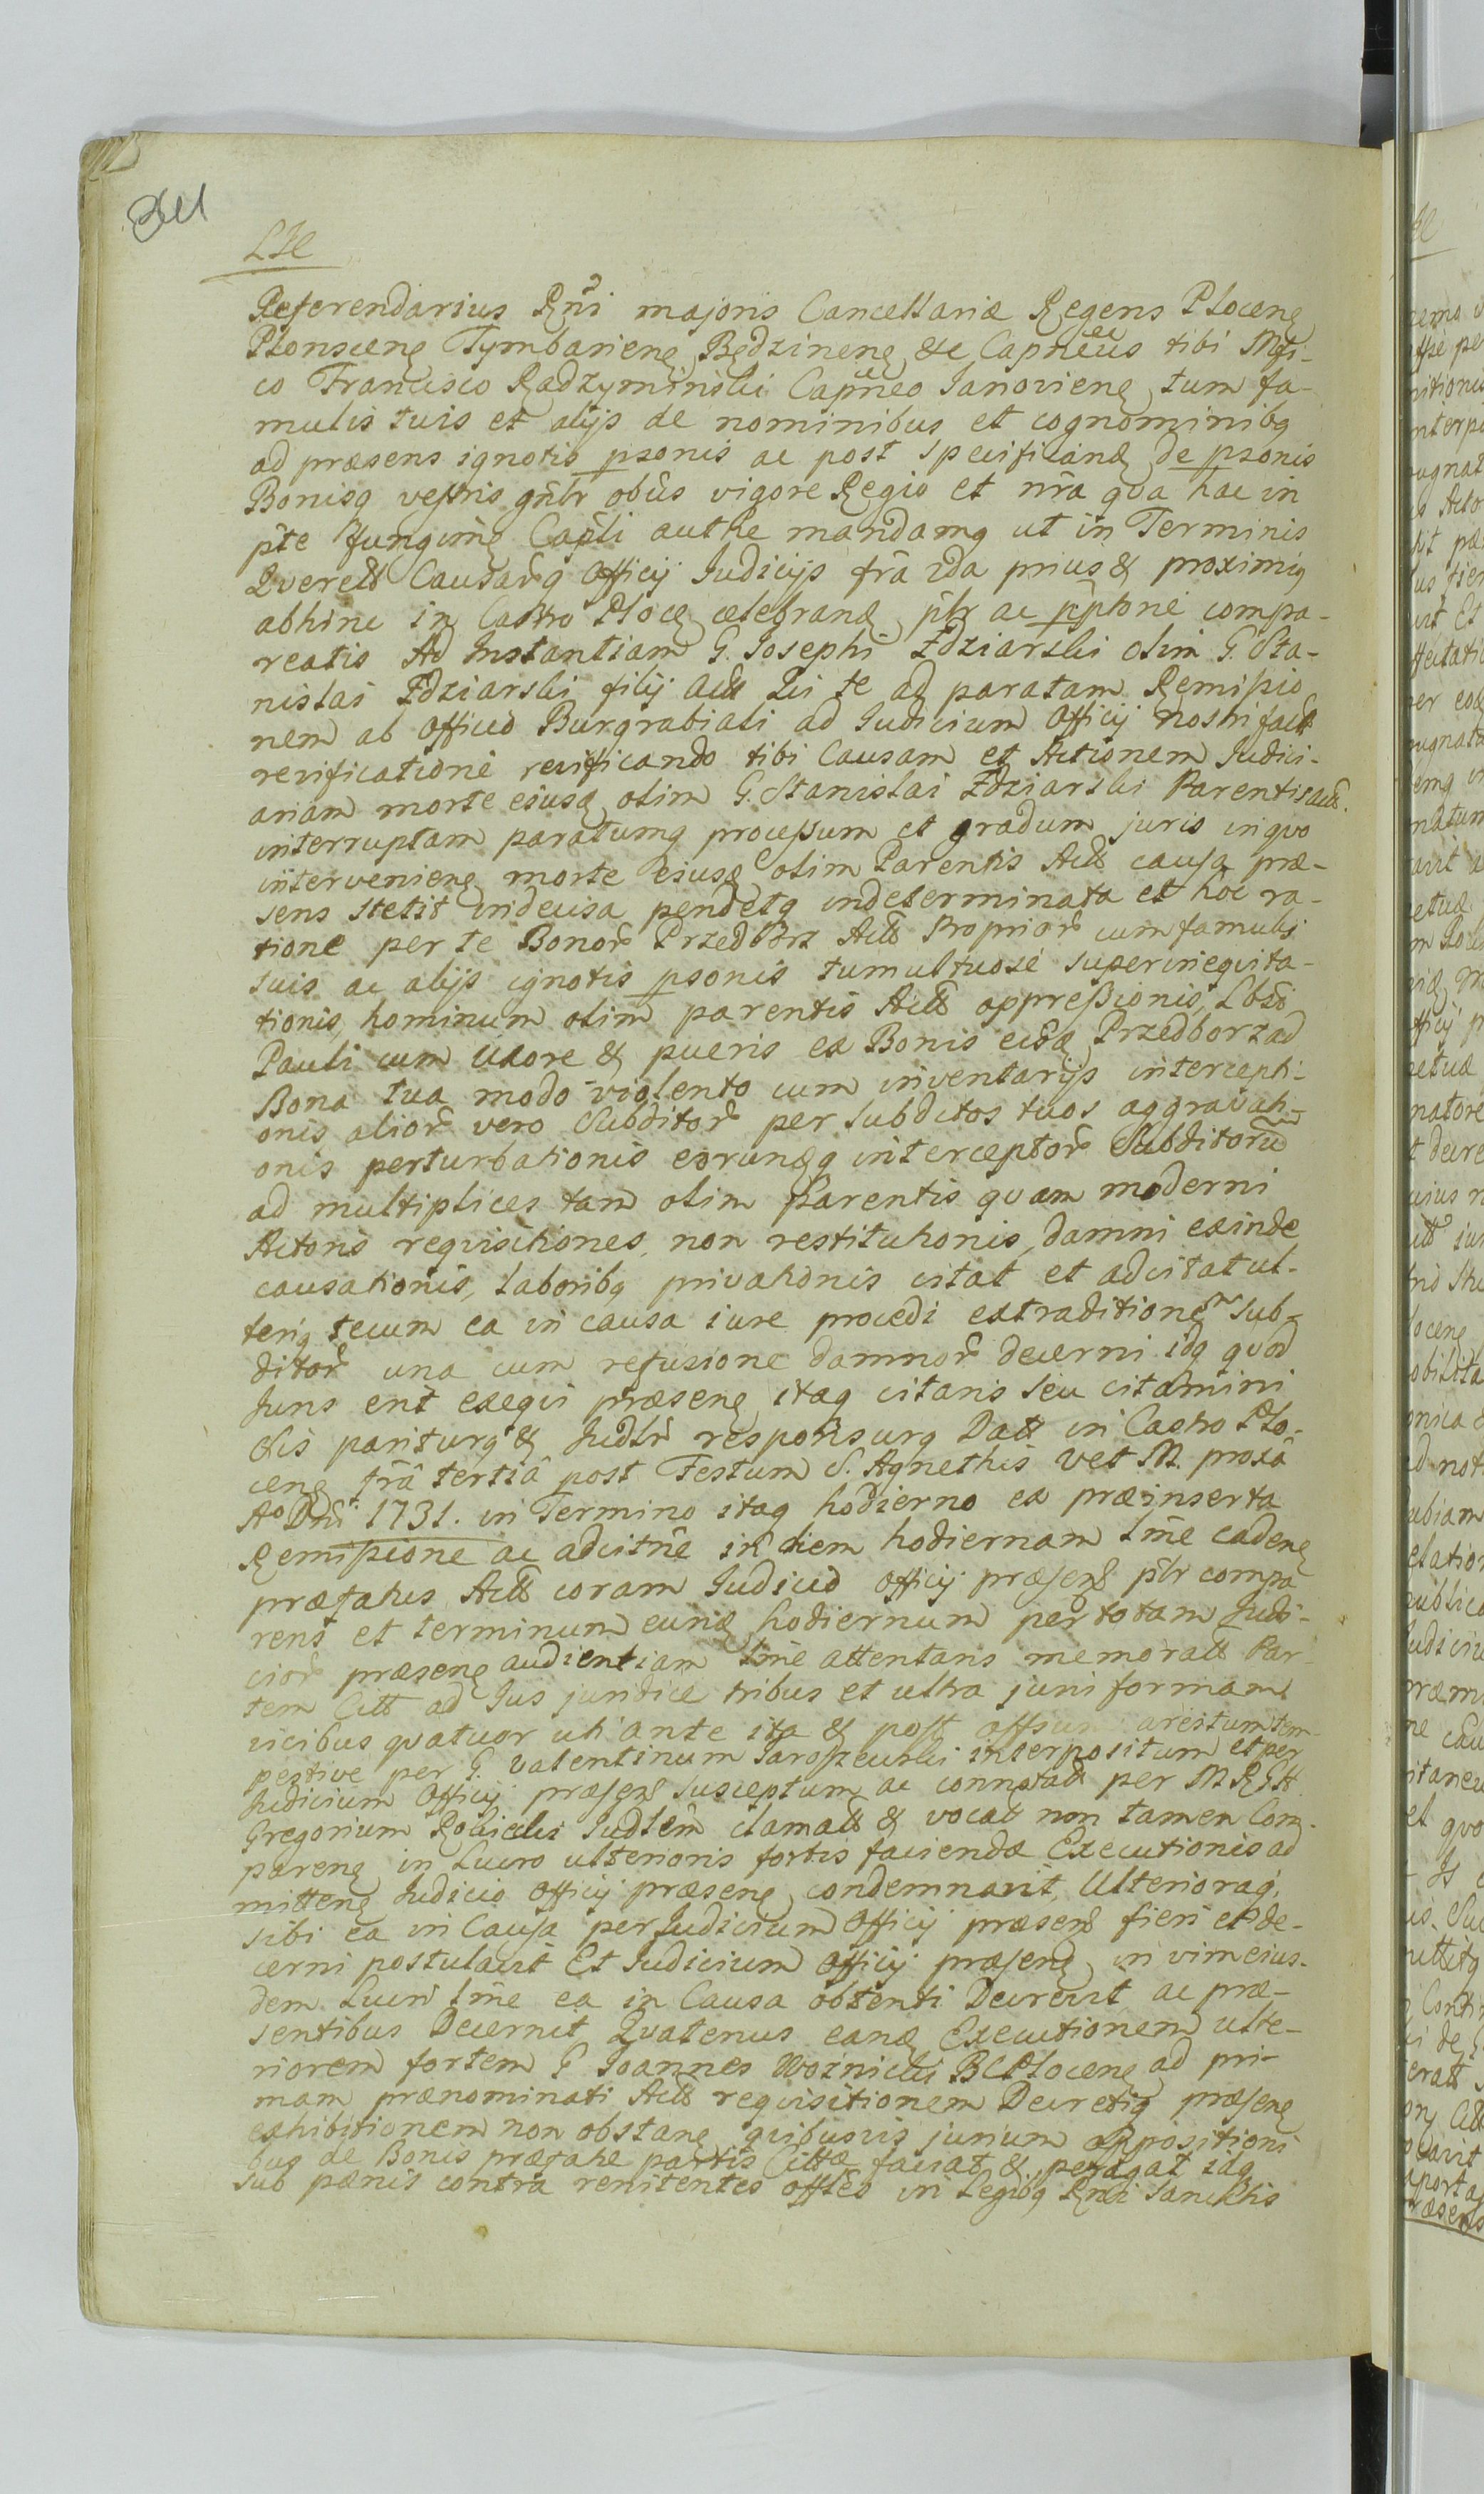 Referendarius Rñi majoris Cancellariæ Regens Plocenę
Płonscenę Tymbarienę Będzinenę &c Capneus tibi Mgfi-
co Francisco Radzyminski Capneo Janovienę tum fa-
mulis tuis et alijs de nominibus et cognominibq
ad præsens ignotis psonis ac post specificandę de psonis
Bonisq vestris gñlr obûs vigore Regio et nra qua hac in
pte fungimę Capli authe mandamq ut in Terminis
Querell Causarq Officij Judicijs frâ 2da prius & proximiq
abhinc in Castro Plocę celebranę plr ac pptorie compa-
reatis Ad Instantiam G. Josephi Zdziarski olim G. Sta-
nislai Zdziarski filij Act Qui te ad paratam Remissio
nem ab Officio Burgrabiali ad Judicium Officij nostri fact
revificatione revificando tibi Causam et Actionem Judici-
ariam morte eiusdę olim G. Stanislai Zdziarski Parentis act.
interruptam paratumq processum et gradum juris in quo
intervenienę morte eiusdę olim Parentis Act causa præ-
sens stetit indecisa pendetq indeterminata et hôc ra-
tione per te Bonor Przedborz Act Proprior cum famulis
suis ac alijs ignotis psonis tumultuosè superinequita-
tionis, hominum olim parentis Act oppressionis, Lbsi
Pauli cum Uxore & pueris ex Bonis eisdę Przedborz ad
Bona tua modo violento cum inventarijs intercepti-
onis alior vero Subditor per subditos tuos aggravati-
onis perturbationis eorundęq interceptor Subditorũ
ad multiplices tam olim Parentis quam moderni
Actoris requisitiones, non restitutionis, damni exinde
causationis, laboribq privationis citat et adcitat ul-
teriq tecum ea in causa iure procedi extraditionem sub-
ditor una cum refusione damnor decerni idq quod
Juris erit exequi præsenę itaq citaris seu citamini
Sis pariturq & Judlr responsurq Datt in Castro Plo-
cenę frâ tertiâ post Festum S. Agnethis Vet M. proxâ
Ao Dni 1731. in Termino itaq hodierno ex præinserta
Remissione ac adcitne in diem hodiernam lme cadenę
præfatus Act coram Judicio Officij præsens plr compa
rens et terminum eundę hodiernum per totam Judi-
cior præsenę audientiam lme attentans memoratt Par-
tem Citt ad Jus juridice tribus et ultra juri formam
vicibus quatuor uti ante ita & post arestum tem-
pestive per G. Valentinum Jaroszewski interpositum et per
Judicium Officij præsens susceptum ac connotatt per M R G H
Gregorium Robicki Judlem clamatt & vocat non tamen Com-
parenę in Lucro ulterioris fortis faciendæ Executionis ad
mittenę Judicio Officij præsenę condemnavit, Ulterioraq
sibi ea in Causa per Judicium Officij præsens fieri et de-
cerni postulavit Et Judicium Officij præsenę in vim eius-
dem Lucri lme ea in Causa obtenti Decrevit ac præ-
sentibus Decernit Quatenus eandę Executionem ulte-
riorem fortem G Joannes Woznicki B C Plocenę ad pri-
mam prænominati Act requisitionem Decretiq præsenę
exhibitionem non obstanę quibusvis jurium oppositioni
bus de Bonis præfatæ partis Cittæ faciat & peragat idq
sub pænis contra renitentes offles in Legibq Rni Sancitis